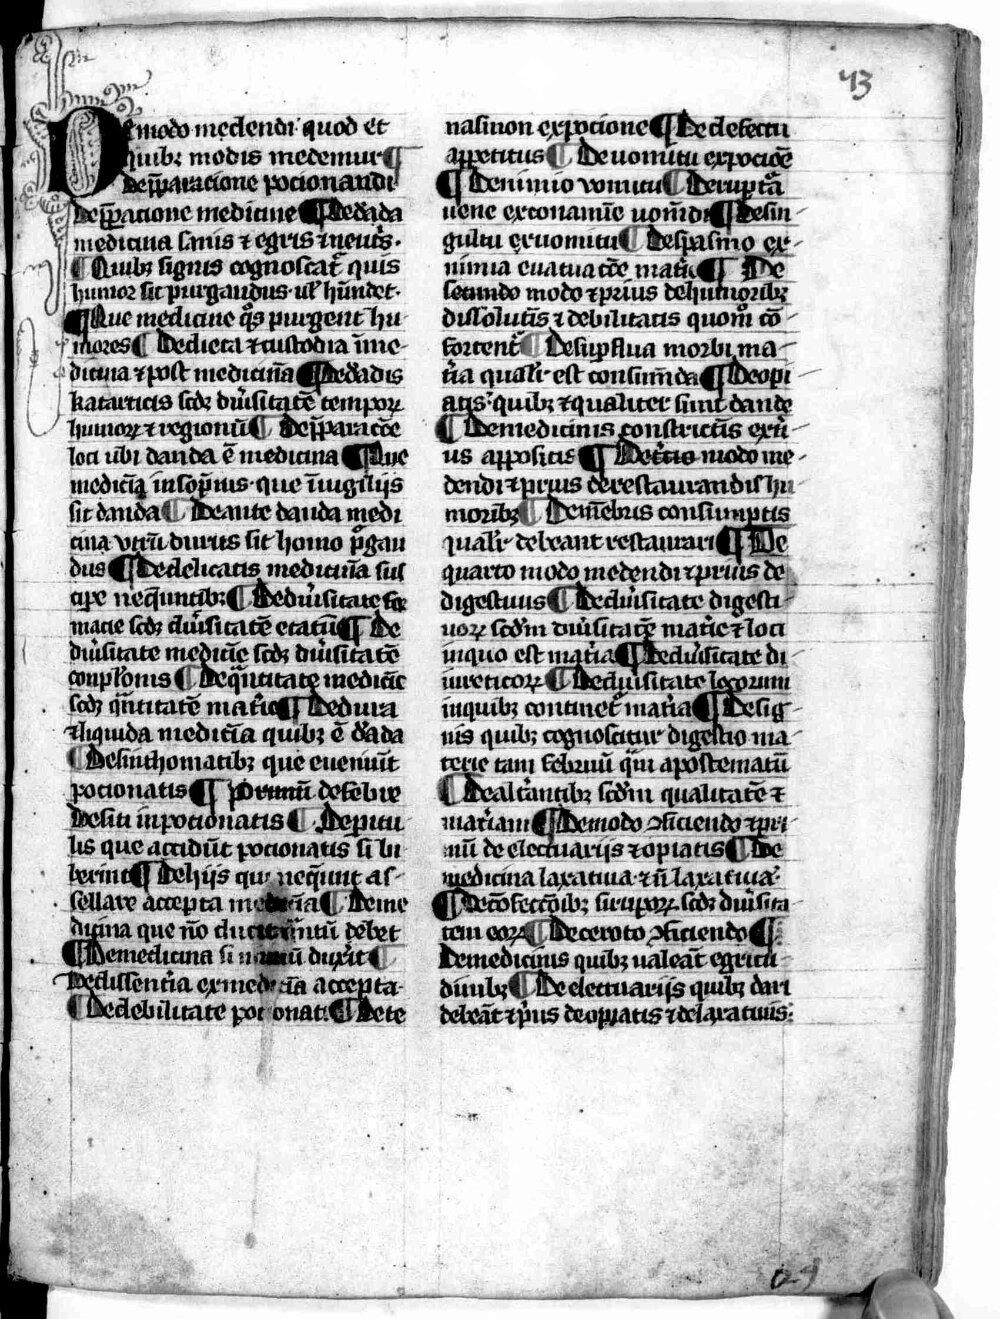 43
De modo medendi quod et
quibꝫ modis medemur ¶
De p̄paracione pocionandi
De p̄pacione medicine ¶ De dāda
medicina sanis ⁊ egris ⁊ neut͛s·
¶ Quibꝫ signis cognoscat᷑ quis
humor sit purgandus· ul̛ hūndet·
¶ Que medicine q̊s purgent hu
mores ¶ De dieta ⁊ custodia ī me-
dicina ⁊ post mediciñā ¶ De dādis
katarticis scdꝫ diu̕sitatē tempoꝝ
humoꝝ ⁊ regionū ¶ De p̄paracōe
loci ubi danda ē medicina ¶ Que
medicīa in sop̄nis· que ī uigilijs
sit danda ¶ De ante danda medi
cina vtrū durus sit homo p̛gan
dus ¶ De delicatis mediciñā sus
cipe nequntibꝫ ¶ De diu̕sitate for
macie scdꝫ diu̕sitatē etatū ¶ De
diu̕sitate medicīe scdꝫ diu̕sitatē
conpl̛onis ¶ De q̄ntitate medicīe
scdꝫ q̄ntitatē mat͛ie ¶ De dura
⁊ liquida medicīa quibꝫ ē dāda
¶ De sinthomatibꝫ que eueniūt
pocionatis ¶ Primū de febre
De siti in pocionatis ¶ De pustu
lis que accidūt pocionatis si bi
berint ¶ De hijs qui nequnt as-
sellare accepta medicīa ¶ De me
dicina que nō ducit q̄ntū debet
¶ De medicina si nimiū duxit ¶
De dissentīa ex medicīa accepta
¶ De debilitate pocionati ¶ De te
nasmon ex pocione ¶ De defectu
appetitus ¶ De uomitu ex pociōe
¶ De nimio vomitu ¶ De rupt̄a
uene ex conamīe uom̄di ¶ De sin-
gultu ex uomitu ¶ De spasmo ex-
nimia euacuacōe mat͛ie ¶ De
secundo modo ⁊ prius de humoribꝫ
dissolutīs ⁊ debilitatis quom̊ cō-
fortent᷑ ¶ De sup̄flua morbi ma-
t͛ia qualit̛ est consum̄da ¶ De opi
atis· quibꝫ ⁊ qualiter sunt dande
¶ De medicinis constrictīs ext̛i-
us appositis ¶ De t͛cio modo me-
dendi ⁊ prius de restaurandis hu
moribꝫ ¶ De mēbris consumptis
qualit̛ debeant restaurari ¶ De
quarto modo medendi ⁊ prius de
digestiuis ¶ De diu̕sitate digesti-
uoꝝ scd̄m diu̕sitatē mat͛ie ⁊ loci
in quo est mat͛ia ¶ De diu̕sitate di-
ureticoꝝ ¶ De diu̕sitate locorum
in quibꝫ continet᷑ mat͛ia ¶ De sig-
nis quibꝫ cognoscitur digestio ma-
terie tam febriū q̄m apostematū
¶ De alt͛antibꝫ scd̄m qualitatē ⁊
mat͛iam ¶ De modo ꝯficiendo ⁊ pri-
mū de electuarijs ⁊ opiatis ¶ De
medicina laxatiua· ⁊ ñ laxatiua·
¶ De cōfeccōibꝫ sirupoꝝ scdꝫ diu̕sita
tem eoꝝ ¶ De ceroto ꝯficiendo ¶
De medicinis quibꝫ ualeāt egritu-
dinibꝫ ¶ De electuarijs quibꝫ dari
debeāt ⁊ p̛us de opiatis ⁊ de laxatiuis: